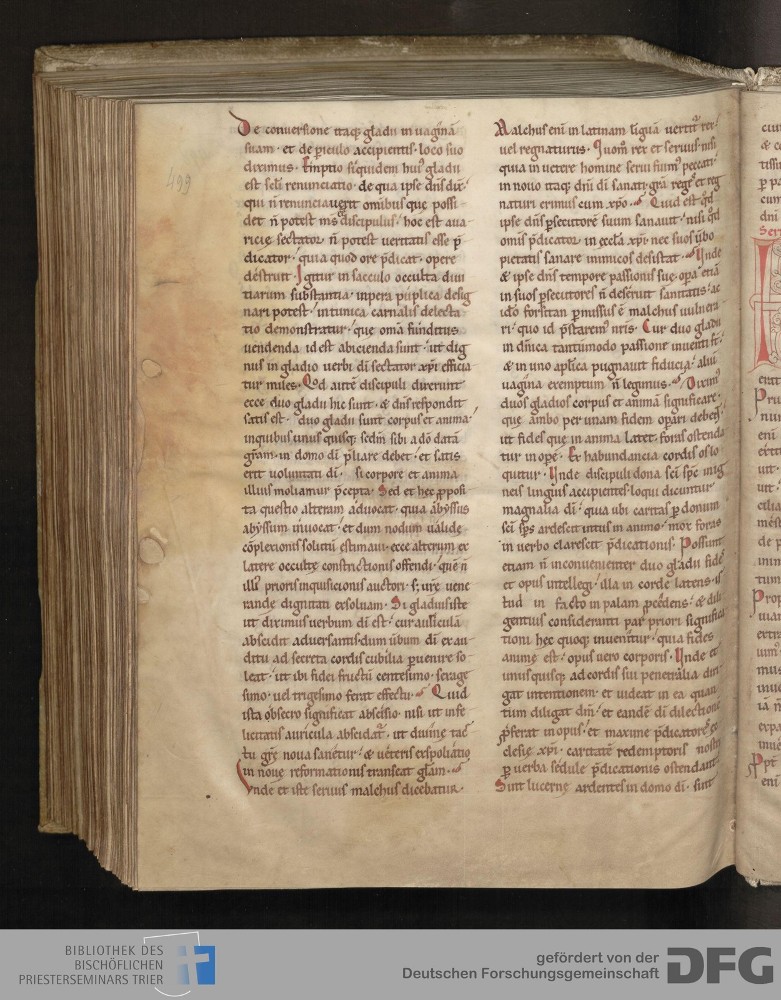 499
De conuersione itaq; gladii in uaginā
suam· et de ꝑiculo accipientis· loco suo
diximus· Emptio siquidem hui᷒ gladii
est scłi renunciatio· de qua ipse dn̄s dix̄·
qui n̄ renunciauerit omnibus que possi
det n̄ potest m̄s discipulus· hoc est aua
ricię sectator n̄ potest ueritatis esse p̄
dicator· quia quod ore p̄dicat· opere
destruit· Igitur in sacculo occulta diui
tiarum substantia· in pera puplica desig
nari potest· in tunica carnalis delecta
tio demonstratur· que om̄ia funditus
uendenda id est abicienda sunt· ut dig
nus in gladio uerbi dī sectator xp̄i efficia
tur miles· Qd̄ autē discipuli dixerunt
ecce duo gladii hic sunt· & dn̄s respondit
satis est· duo gladii sunt corpus et anima·
in quibus unus quisq; scdm̄ sibi a dō datā
gr̄am· in domo dī p̄liare debet· et satis
erit uoluntati dī· si corpore et anima
illius moliamur p̄cepta· Sed et hec ꝓposi
ta questio alteram aduocat· quia abyssus
abyssum inuocat· et dum nodum ualide
cōplexionis solitū estimaui· ecce alterum ex
latere occultę constrictionis offendi· quē n̄
illi᷒ prioris inquisicionis auctori· s; ur̄ę uene
randę dignitati exsoluam· Si gladius iste
ut diximus uerbum dī est· cur auriculā
abscidit aduersantis· dum ūbum dī ex au
ditu ad secreta cordis cubilia ꝑuenire so
leat· ut ibi fidei fructū centesimo· sexage
simo· uel trigesimo ferat effectu· Quid
ista obsecro significat abscisio· nisi ut infe
licitatis auricula abscidat᷑· ut diuinę tac
tu gr̄ę noua sanetur· & ueteris exspoliatio
in nouę reformationis transeat gl̄am·
Vnde et iste seruus malchus dicebatur·
Malchus eni in latinam linguā uertit᷑ rex·
uel regnaturus· Quom̄ rex et seruus· nisi
quia in uetere homine serui fuim᷒ peccati·
in nouo itaq; dn̄i dī sanati gr̄a
naturi erimus cum xp̄o· Quid est qd̄
ipse dn̄s ꝑsecutorē suum sanauit· nisi qd̄
omis p̄dicator in ęccl̄a xp̄i· nec suos ūbo
pietatis sanare inimicos desistat· Vnde
& ipse dn̄s tempore passionis suę· opa̅ etiā
in suos ꝑsecutores n̄ deseruit sanitatis· ac
ido̅ forsitan ꝑmissus ē malchus uulnera
ri· quo id p̄starem᷒ nr̄is· Cur duo gladii
in dn̄ica tantummodo passione inuenti st̄·
& in uno apl̄ica pugnauit fiducia· aliū
uagina exemptum n̄ legimus· Diximus
duos gladios corpus et animā significare·
que ambo per unam fidem opari debent·
ut fides que in anima latet· foris ostenda
tur in ope· Ex habundancia cordis os lo
quitur· Vnde discipuli dona sc̄i sp̄c in ig
neis linguis accipientes· loqui dicuntur
magnalia dī· quia ubi caritas ꝑ donum
sc̄i sp̄s ardescit intus in animo· mox foras
in uerbo clarescit p̄dicationis· Possunt
etiam n̄ inconuenienter duo gladii fides
et opus intellegi· illa in corde latens· is
tud in facto in palam ꝓcedens· & dili
gentius consideranti par priori significa
tioni hęc quoq; inuenitur· quia fides
animę est· opus uero corporis· Vnde et
unusquisq; ad cordis sui penetralia diri
gat intentionem· et uideat in ea quan
tum diligat dm̄· et eandē dī dilectionē
ꝓferat in opus· et maxime p̄dicatores ec
clesię xp̄i· caritatē redemptoris nostri
ꝑ uerba sedule p̄dicationis ostendant
Sint lucerne ardentes in domo dī· sint
BIBLIOTHEK DES
BISCHÖFLICHEN
PRIESTERSEMINARS TRIER
gefördert von der
Deutschen Forschungsgemeinschaft
DFG